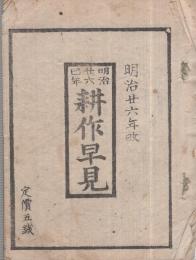 明治廿六年改
明治
廿六
巳年
耕作早見
定價五錢